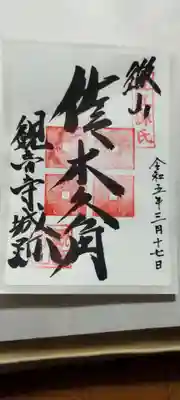 繖山
令和五年三月十七日
佐々木六角
観音寺城跡